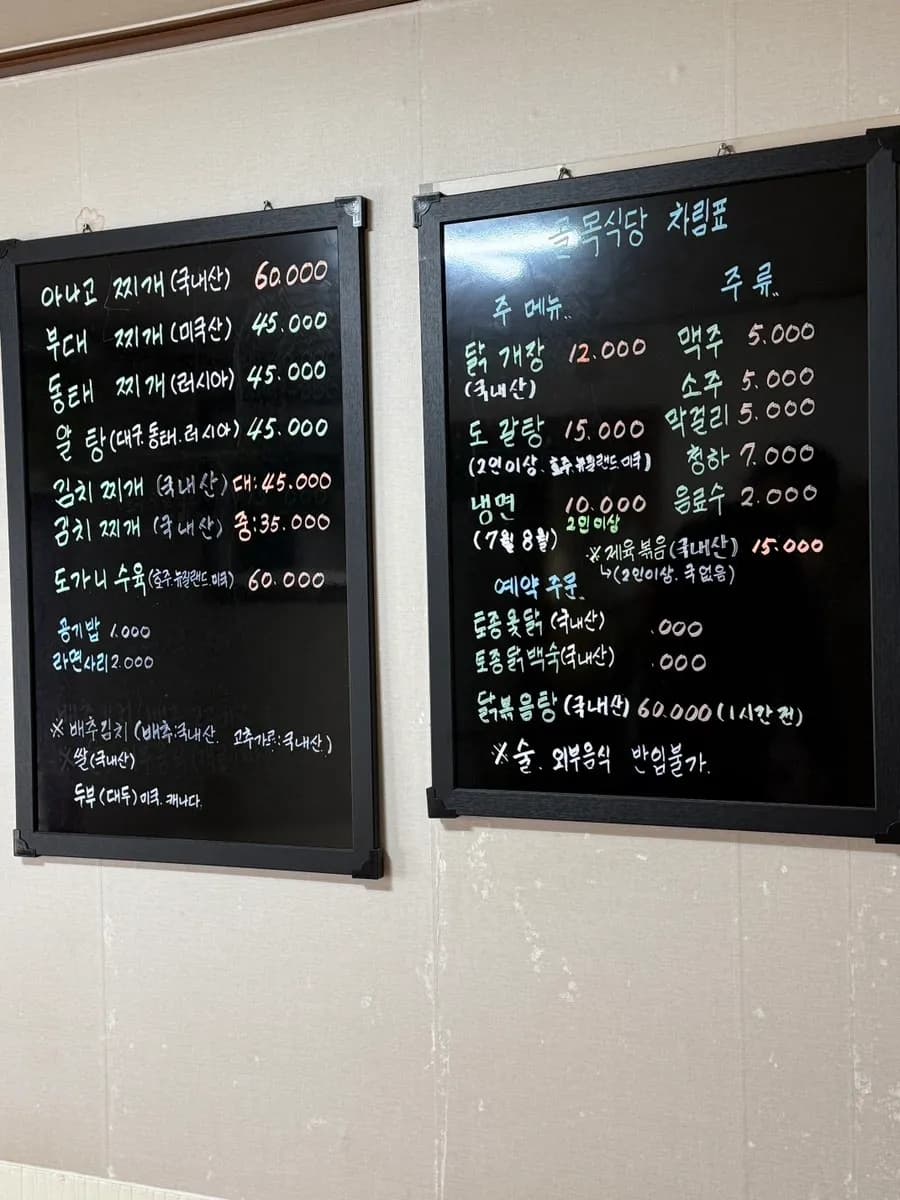 아나고 찌개 (국내산) 60.000
부대 찌개 (미국산) 45.000
동태 찌개 (러시아) 45.000
알 탕 (대구.동태.러시아) 45.000
김치 찌개 (국내산) 대:45.000
김치 찌개 (국내산) 중:35.000
도가니 수육 (호주.뉴질랜드.미국) 60.000
공기밥 1.000
라면사리 2.000
※ 배추김치 (배추:국내산. 고추가루:국내산.)
※ 쌀(국내산)
두부 (대두) 미국. 캐나다.
골목식당 차림표
주 메뉴..
닭 개장 12.000
(국내산)
도 갈탕 15.000
(2인이상. 호주.뉴질랜드.미국)
냉면 10.000
2인이상
(7월 8월)
주 류..
맥주 5.000
소주 5.000
막걸리 5.000
청하 7.000
음료수 2.000
※ 제육볶음 (국내산) 15.000
↳(2인이상. 국없음)
예약 주문..
토종옻닭 (국내산) .000
토종닭백숙(국내산) .000
닭볶음탕 (국내산) 60.000 (1시간 전)
※ 술. 외부음식 반입불가.